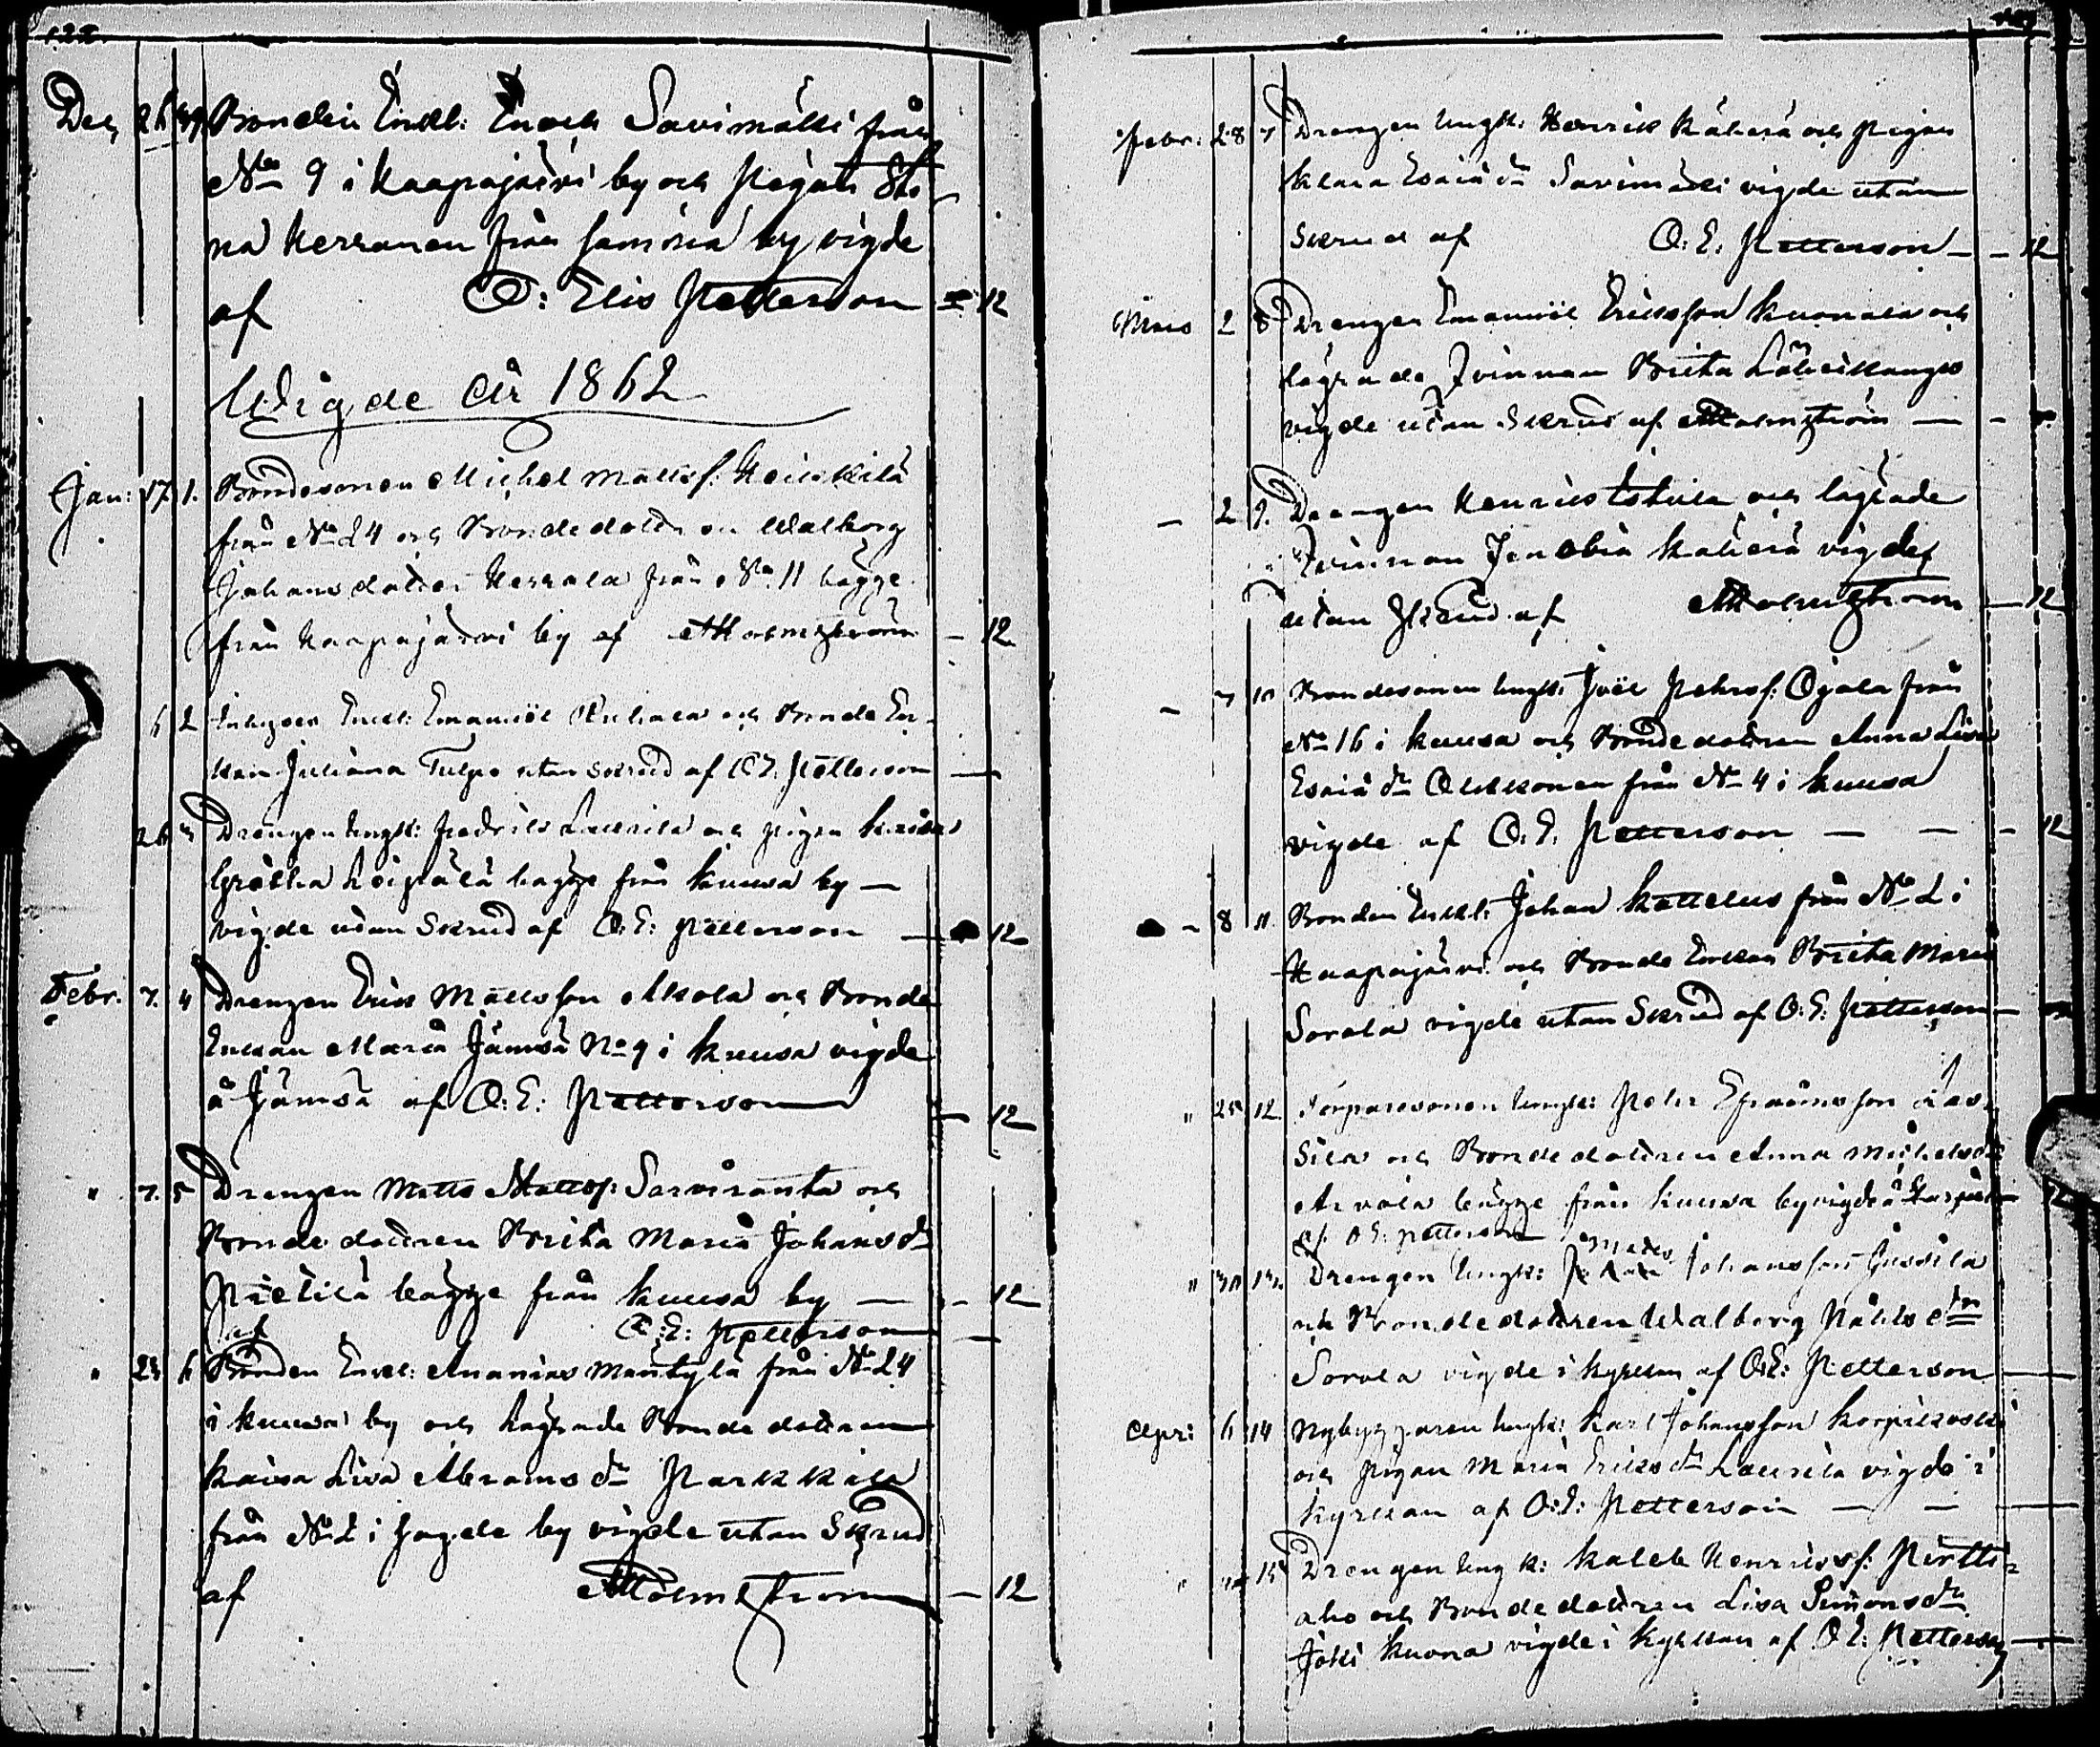 122.
Dec 26 39 Bonden Enkl: Enoch Savimäkki från
No 9 i Haapajärvi by och Pigan Sti
na Kerranen från samma by vigde
af O: Elis Petterson — 12
Wigde År 1862
Jan: 17 1. Bondesonen Michel Mattsf: Heiskilä
från No 24 och Bondedottren Walborg
Johansdotter Kerrala från No 11 bägge
från Haapajärvi by af Holmström — 12
6 2 Enkl: Emanuel och Bonde En-
kan Juliana Tulpo utan Skrud af O E: Petterson —
26 3 Drengen Ungk: Fredrik Laurila och Pigan Kaisa
Gretha Leipälä bägge från Kuusa by —
vigde utan Skrud af O: E: Petterson — 12
Febr. 7. 4 Drengen Erik Mattsson Akola och Bonde
Enkan Maria Jämsä No 9 i Kuusa vigde
å Jämsä af O: E: Petterson — 12
" 7. 5 Drengen Matts Mattsf: Sarviranta och
Bonde dottren Brita Maria Johansdr
Pietilä bägge från Kuusa by — - 12
af O: E: Petterson —
" 23 6 Bonden Enkl: Ananias Mäntylä från No 24
i Kuusa by och lägrade Bonde dottren
Kaisa Lisa Abramsdr Parkkila
från No 2 i sagde by vigde utan Skrud
af Holmström — 12
Febr: 28 7 Drengen Ungk: Henrik Kähärä och Pigan
Klara Esaiædr Savimäki vigde utan
Skrud af O: E: Petterson — - 12
Mars 2 8 Drengen Emanuel Ericsson Kuonala och
lägrade Qvinnan Brita Läheikangas
vigde utan Skrud af Holmström —
— 2 9. Drengen Henric och lägrade
Qvinnan Zenobia Kähärä vigde
utan Skrud af Holmström — 12
— 7 10 Bondesonen Ungk: Joel Pehrsf: Ojala från
No 16 i Kuusa och Bondedottren Anna Lisa
Esaiædr Oukkonen från No 4 i Kuusa
vigde af O. E. Petterson — — - 12
- 8 11. Bonden Enkl: Johan Kattelus från No 2 i
Haapajärvi och Bonde Enkan Brita Maria
Sorola vigde utan Skrud af O: E: Petterson —
" 25 12 Torparesonen Ungk: Pehr Efraimsson Las-
sila och Bondedottren Anna Michelsdr
Arvola bägge från Kuusa by vigde å 12
af O E: Petterson
" 30 13. Drengen Ungk: Matts Johansson Jussila
och Bondedottren Walborg Nilsdr
Sorola vigde i Kyrkan af O: E: Petterson —
Apr: 6 14 Nybyggaren Ungk: Karl Johansson Korpikoski
och Pigan Maria Ericsdr Laurila vigde i
Kyrkan af O: E: Petterson — — —
" 15 Drengen Ungk: Kaleb Henricsf: Pirtti-
aho och Bondedottren Lisa Simonsdr
Joki Kuona vigde i Kyrkan af O E: Petterson —